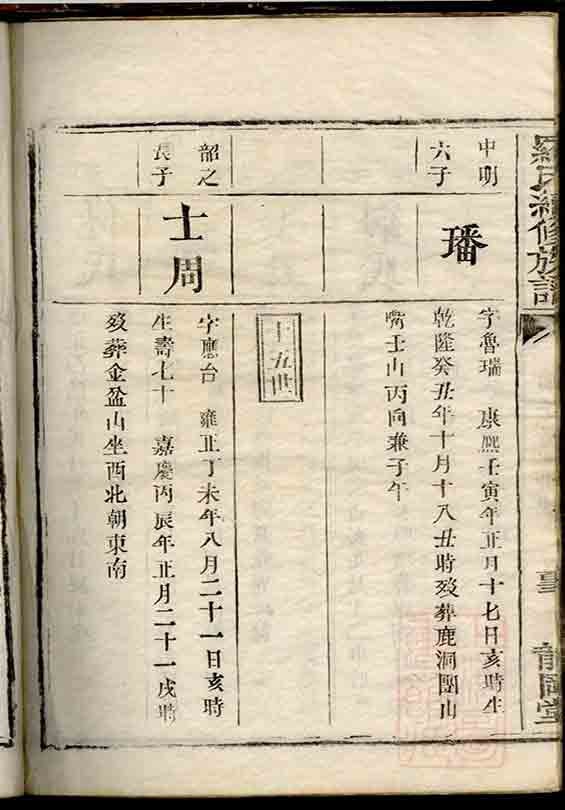 羅氏續修族譜
龍岡堂
中明
六子
璠
字魯瑞 康熙壬寅年正月十七日亥時生
乾隆癸丑年十月十八丑時歿葬鹿洞團山
嘴壬山丙向兼子午
十五世
韶之
長子
士周
字應台 雍正丁未年八月二十一日亥時
生壽七十 嘉慶丙辰年正月二十一戌時
歿葬金盆山坐西北朝東南